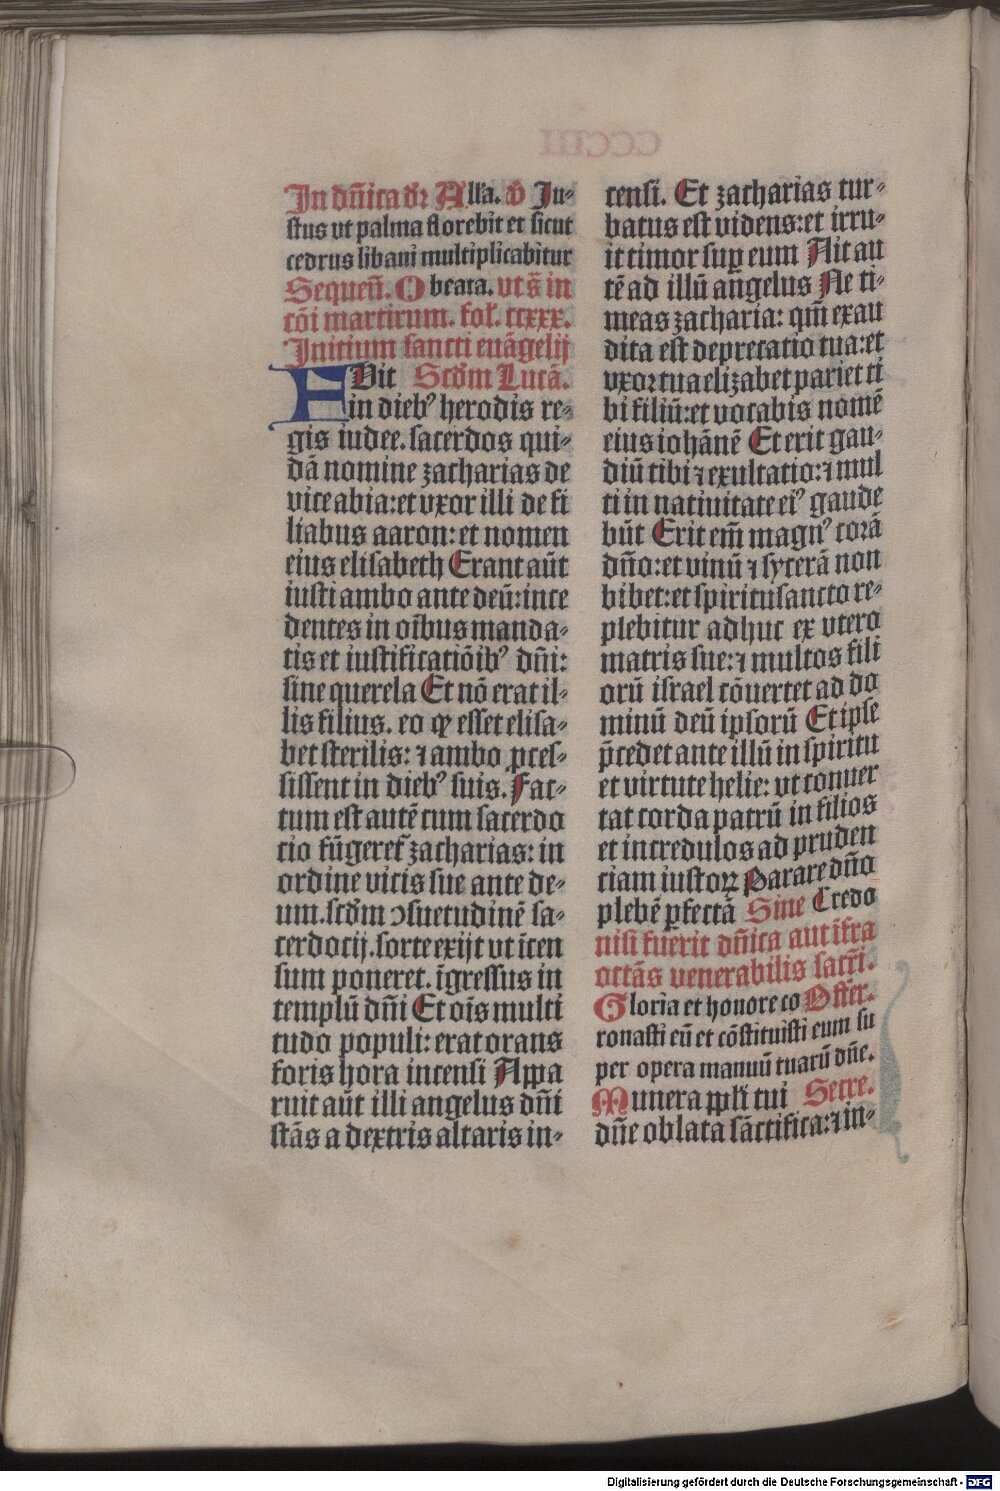 In dn̄ica dr̄ Alla. v̄ Ju-
stus vt palma florebit et sicut
cedrus libani multiplicabitur
Sequen̄. O beata. vt s̄ in
cōi martirum. fol. ccxxx.
Initium sancti euāgelij
FVit Scdm Lucā.
in dieb⁹ herodis re-
gis iudee. sacerdos qui-
dā nomine zacharias de
vice abia: et vxor illi de fi
liabus aaron: et nomen
eius elisabeth Erant aūt
iusti ambo ante deū: ince
dentes in oībus manda-
tis et iustificatiōib⁹ dn̄i:
sine querela Et nō erat il-
lis filius. eo ꝙ esset elisa-
bet sterilis: ⁊ ambo ꝓces-
sissent in dieb⁹ suis. Fac-
tum est autē cum sacerdo
cio fūgeret᷑ zacharias: in
ordine vicis sue ante de-
um. scdm ↄsuetudinē sa-
cerdocij. sorte exijt vt īcen
sum poneret. īgressus in
templū dn̄i Et oīs multi
tudo populi: erat orans
foris hora incensi Appa
ruit aūt illi angelus dn̄i
stās a dextris altaris in-
censi. Et zacharias tur-
batus est videns: et irru-
it timor suꝑ eum Ait au
tē ad illū angelus Ne ti-
meas zacharia: qm̄ exau
dita est deprecatio tua: et
vxor tua elizabet pariet ti
bi filiū: et vocabis nomē
eius iohānē Et erit gau-
diū tibi ⁊ exultatio: ⁊ mul
ti in natiuitate ei⁹ gaude
būt Erit em̄ magn⁹ corā
dn̄o: et vinū ⁊ sycerā non
bibet: et spiritusancto re-
plebitur adhuc ex vtero
matris sue: ⁊ multos fili
orū israel cōuertet ad do
minū deū ipsorū Et ipse
p̄cedet ante illū in spiritu
et virtute helie: vt conuer
tat corda patrū in filios
et incredulos ad pruden
ciam iustoꝝ Parare dn̄o
plebē ꝑfectā Sine Credo
nisi fuerit dn̄ica aut īfra
octās venerabilis sacr̄i.
Gloria et honore co Offer.
ronasti eū et cōstituisti eum su
per opera manuū tuarū dn̄e.
Munera ppl̄i tui Secre.
dn̄e oblata sāctifica: ⁊ in-
Digitalisierung gefördert durch die Deutsche Forschungsgemeinschaft - DFG